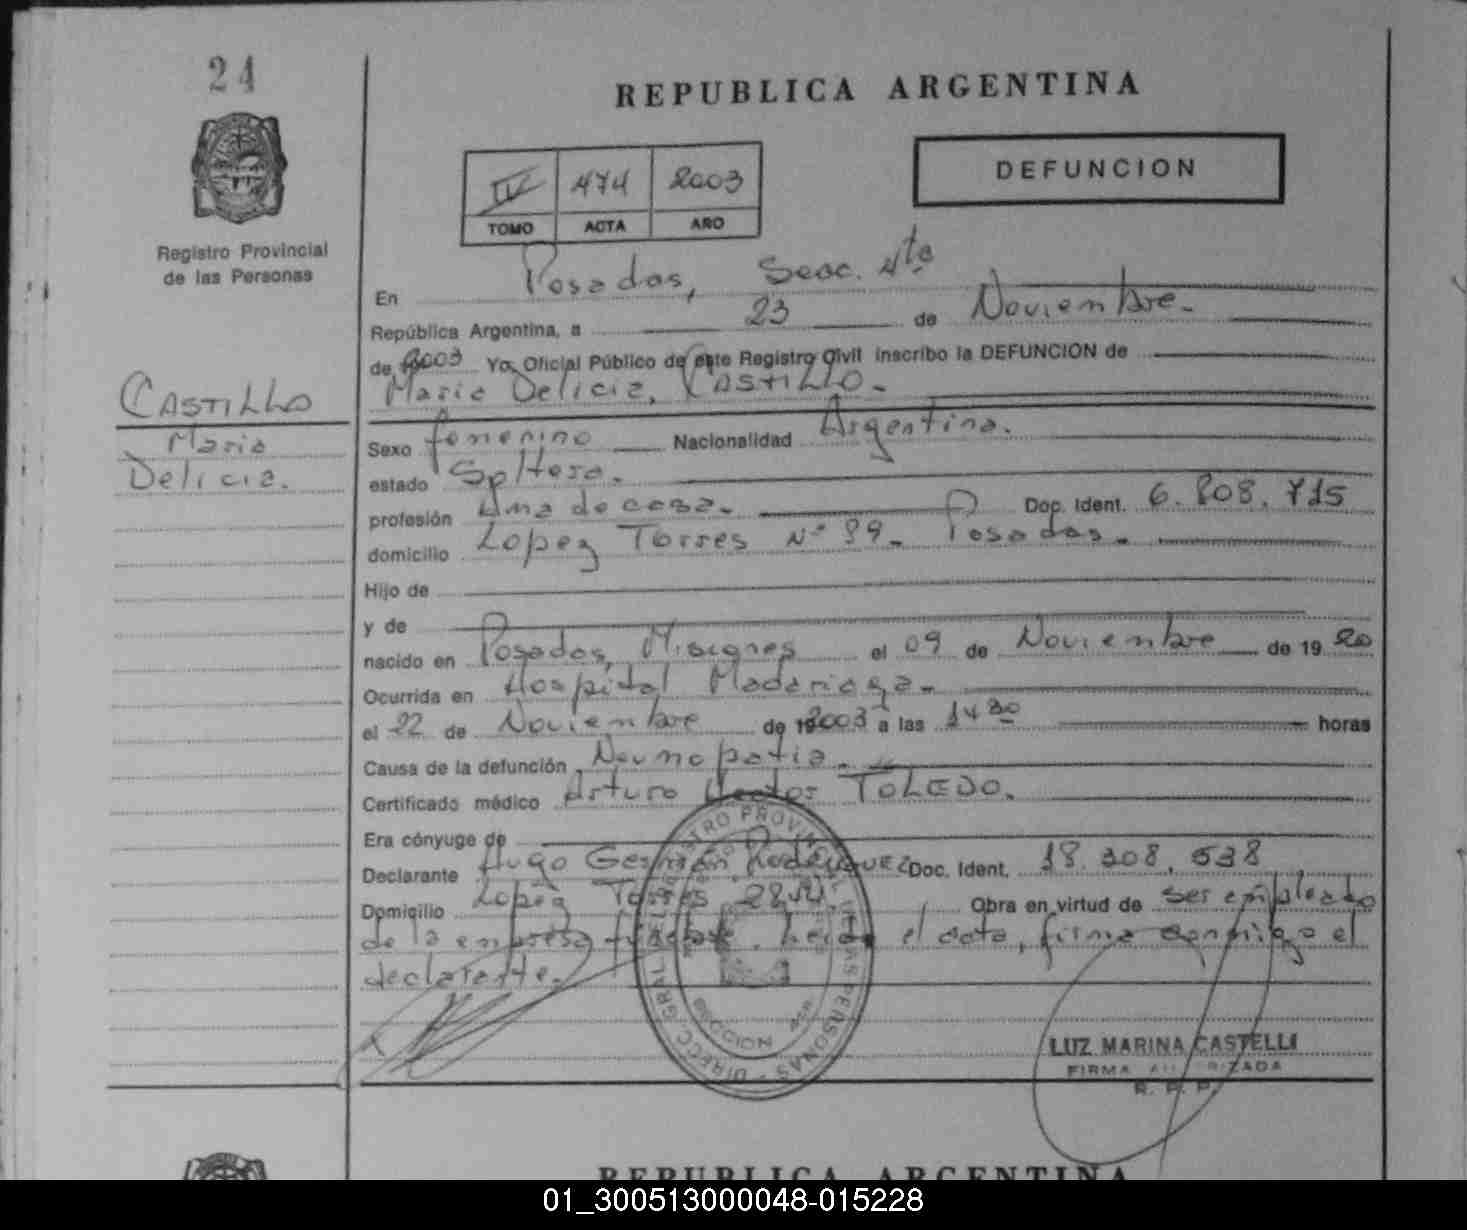 24
REPUBLICA ARGENTINA
DEFUNCION
IV 474 2003
TOMO ACTA AÑO
Registro Provincial
de las Personas
CASTILLO
Maria
Delicia.
En Posadas, Secc. 4ta
República Argentina, a 23 de Noviembre.
de 2003 Yo, Oficial Público de este Registro Civil inscribo la DEFUNCION de
Maria Delicia, CASTILLO.
Sexo femenino Nacionalidad Argentina.
estado Soltera.
profesión Ama de casa. Doc. Ident. 6.808.715
domicilio Lopez Torres Nº 99. Posadas.
Hijo de
y de
nacido en Posadas, Misiones el 09 de Noviembre de 19 20
Ocurrida en Hospital Madariaga.
el 22 de Noviembre de 2003 a las 14 30 horas
Causa de la defunción Neumopatia.
Certificado médico Arturo Hector TOLEDO.
Era cónyuge de
Declarante Hugo Germán Rodriguez Doc. Ident. 18.308.538
Domicilio Lopez Torres Obra en virtud de ser empleado
de la empresa leida el acta, firma conmigo el
declarante.
LUZ MARINA CASTELLI
FIRMA AUTORIZADA
R. P. P.
REPUBLICA ARGENTINA
01_300513000048-015228